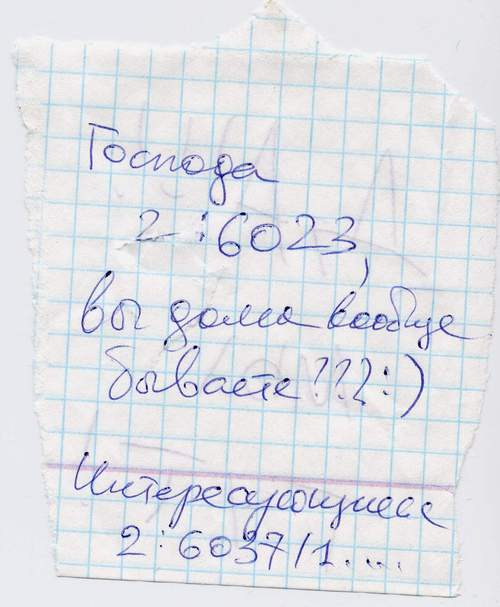 Господа
2:6023,
вы дома вообще
бываете???:)
Интересующиеся
2:6037/1....